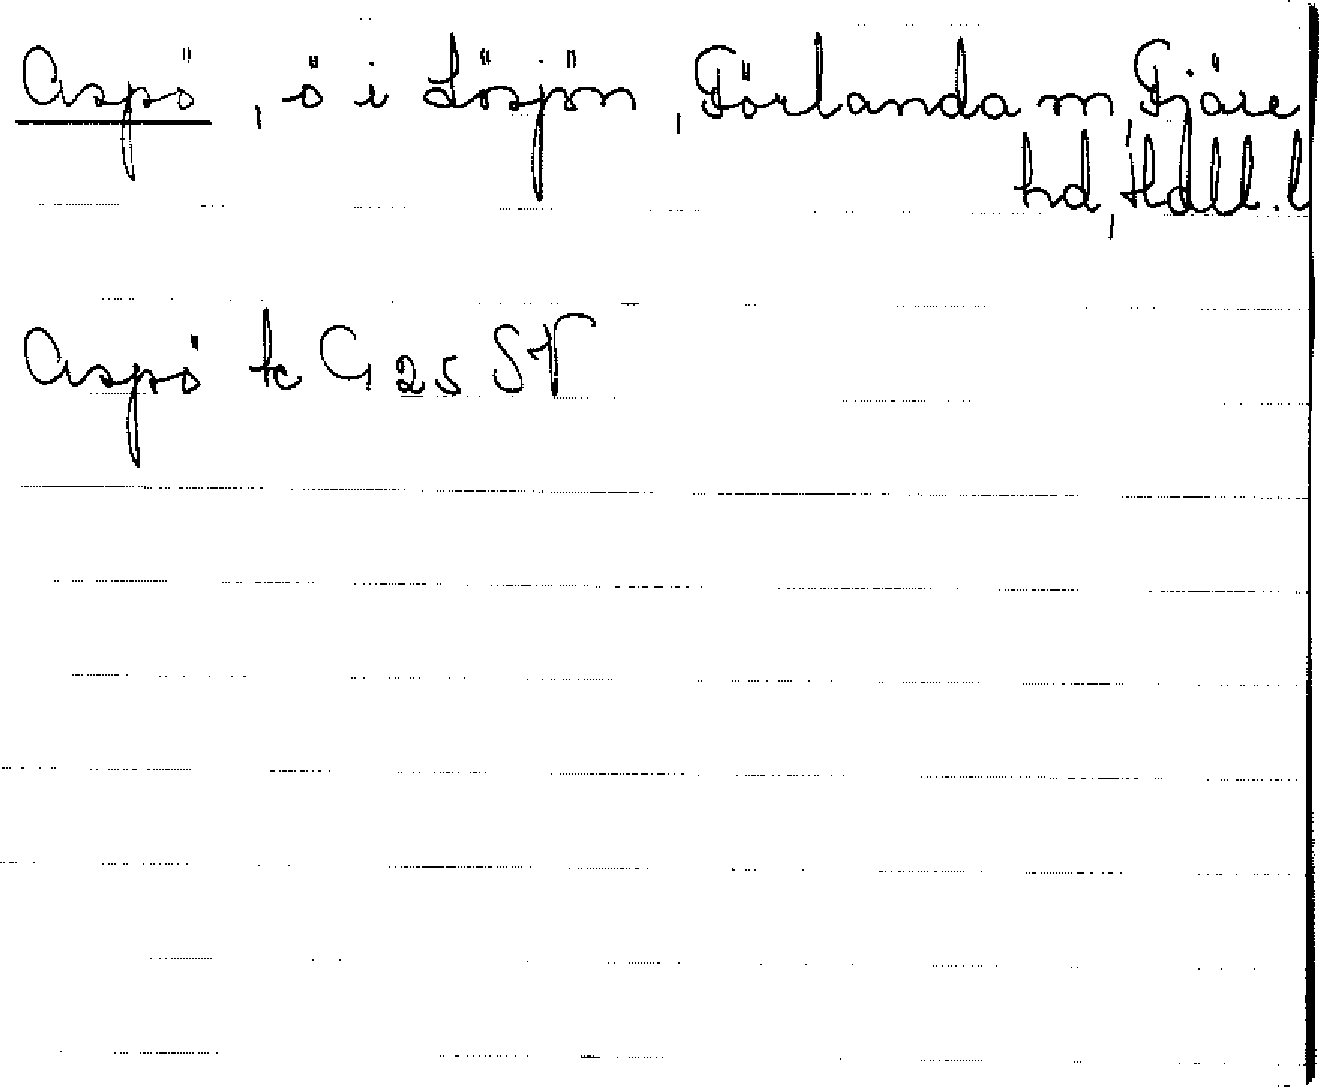 Aspö, ö i Lösjön, Förlanda sn, Fjäre
hd, Hall. l
Aspö tc G 25 SV